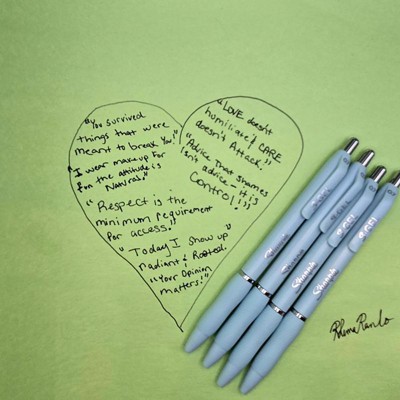 "You survived
things that were
meant to break You!"
"I wear makeup for
fun the attitude is
Natural."
"Respect is the
minimum requirement
for access."
"Today I show up"
radiant & Rooted.
"Your Opinion
matters!"
"LOVE doesn't
humiliate & CARE
doesn't Attack."
"Advice That shames
isn't advice - it is
Control!"
Sharpie
S·GEL
Sharpie
S·GEL
Sharpie
S·GEL